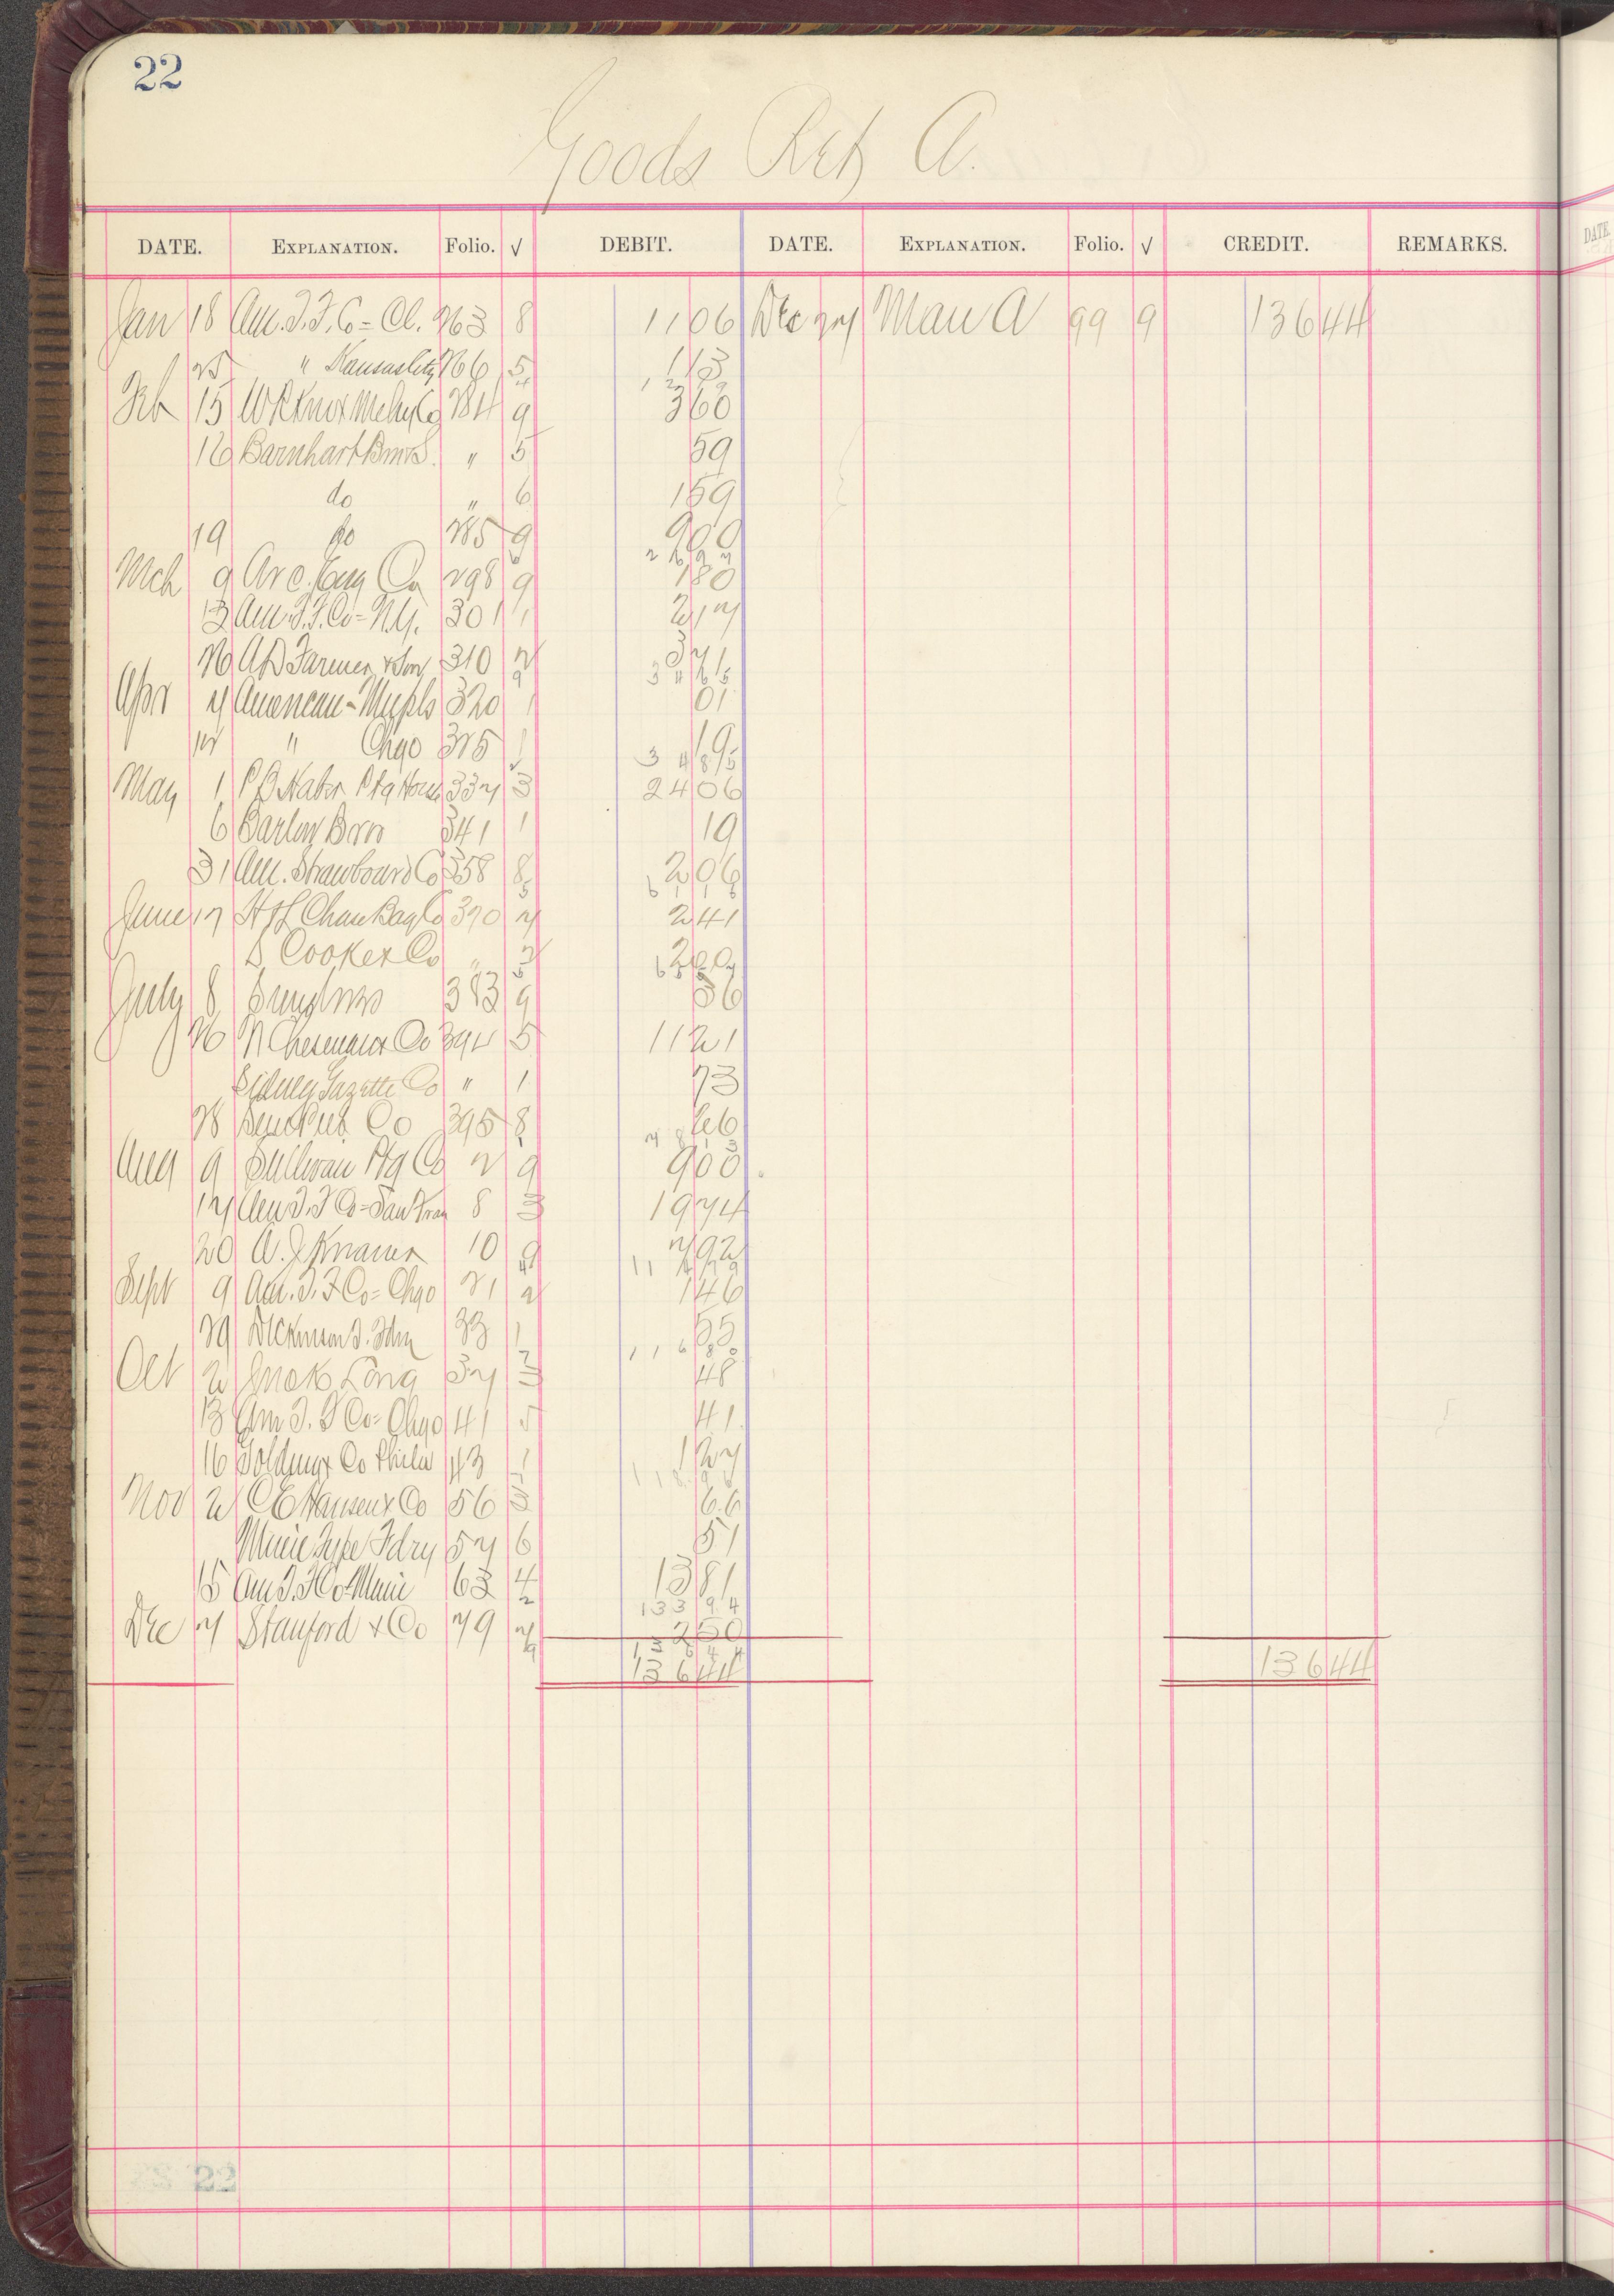 22
Goods Ret A.
DATE. EXPLANATION. Folio. √ DEBIT. DATE. EXPLANATION. Folio. √ CREDIT. REMARKS.
Jan 18 Am. T. F. Co = Cl. 263 8 11 06 Dec 27 Man A 99 9 136 44
25 " Kansas City 266 5 1 13
Feb 15 W R Knox Mchy Co 284 9 3 60
16 Barnhart Bros. " 5 59
do " 6 1 59
19 do 285 9 9 00
Mch 9 Arc. Eng Co 298 9 1 80
13 Am. T. F. Co = N.Y. 301 1 2 17
26 A D Farmer & Son 310 2
Apr 7 American - Mnpls 320 1 01
12 " Chgo 325 1 19
34 85
May 1 337 3 24 06
6 Earlen Bros 341 1 19
31 Am. Strawboard Co 358 8 2 06
June 17 H & L Chase Bag Co 370 7 2 41
S. Cooke & Co " 2
July 8 383 9 36
26 394 5 11 21
Sidney Gazette Co " 1 73
28 Co 395 8 26
Aug 9 Sullivan Ptg Co 2 9 9 03
17 Am T. F Co = San Fran 8 3 19 74
20 A. J. Knauer 10 9 7 92
Sept 9 Am. T. F Co = Chgo 21 2 1 46
29 Dickinson T. Fdry 33 1
Oct 2 Long 37 3 48
13 Am T. F Co = Chgo 41 5 41
16 Golding & Co Phila 43 1 1 27
Nov 2 C E Hansen & Co 56 66
Muie Type Fdry 57 6 51
15 Am T. F Co = Muie 63 4 13 81
133 94
Dec 7 Stanford & Co 79 7 2 50
136 44
136 44 136 44
22